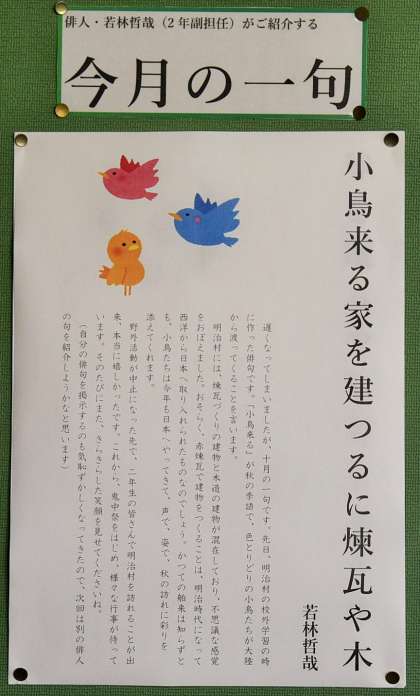 俳人・若林哲哉（2年副担任）がご紹介する
今月の一句
小鳥来る家を建つるに煉瓦や木
若林哲哉
遅くなってしまいましたが、十月の一句です。先日、明治村の校外学習の時
に作った俳句です。「小鳥来る」が秋の季語で、色とりどりの小鳥たちが大陸
から渡ってくることを言います。
明治村には、煉瓦づくりの建物と木造の建物が混在しており、不思議な感覚
をおぼえました。おそらく、赤煉瓦で建物をつくることは、明治時代になって
西洋から日本へ取り入れられたものなのでしょう。かつての舶来は知らずと
も、小鳥たちは今年も日本へやってきて、声で、姿で、秋の訪れに彩りを
添えてくれます。
野外活動が中止になった先で、二年生の皆さんで明治村を訪れることが出
来、本当に嬉しかったです。これから、鬼中祭をはじめ、様々な行事が待って
います。そのたびにまた、きらきらした笑顔を見せてくださいね。
（自分の俳句を掲示するのも気恥ずかしくなってきたので、次回は別の俳人
の句を紹介しようかなと思います）